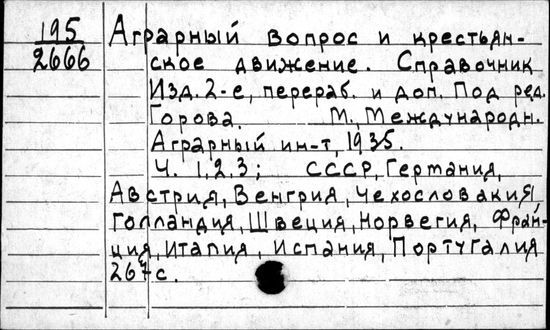 195
2666
Аграрный вопрос и крестьян-
ское движение. Справочник
Изд. 2-е, перераб. и доп. Под ред.
Горова. М., Международн.
Аграрный ин-т, 1935.
Ч. 1,2,3; СССР, Германия,
Австрия, Венгрия, Чехословакия
Голландия, Швеция, Норвегия, Фран-
ция, Италия, Испания, Португалия
267 с.